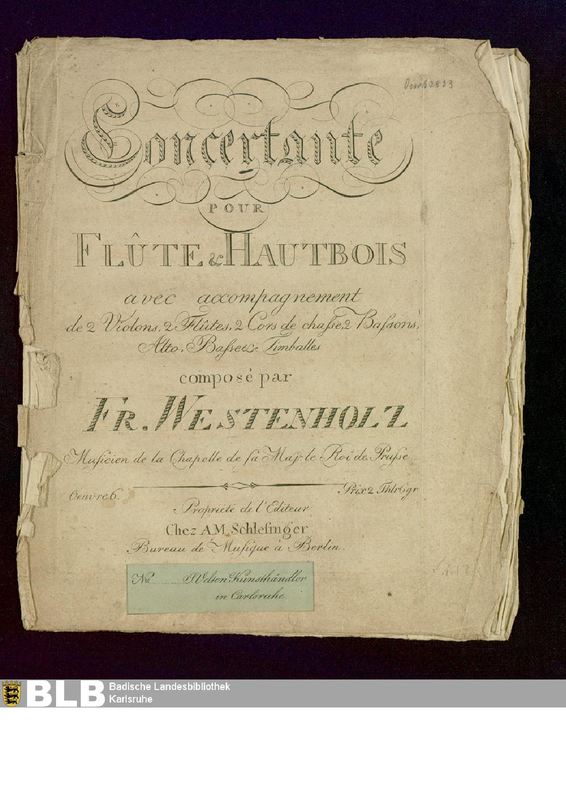 Concertante
POUR
FLÛTE & HAUTBOIS
avec accompagnement
de 2 Violons, 2 Flûtes, 2 Cors de chaſse, 2 Baſsons,
Alto, Baſse & Timballes
composé par
FR. WESTENHOLZ
Muſicien de la Chapelle de ſa Maj. le Roi de Prusse
Oeuvre 6. Prix 2 Thlr 6 gr
Proprieté de l'Editeur
Chez A.M. Schleſinger
Bureau de Muſique à Berlin.
No. Velten Kunsthändler
in Carlsruhe
BLB Badische Landesbibliothek
Karlsruhe